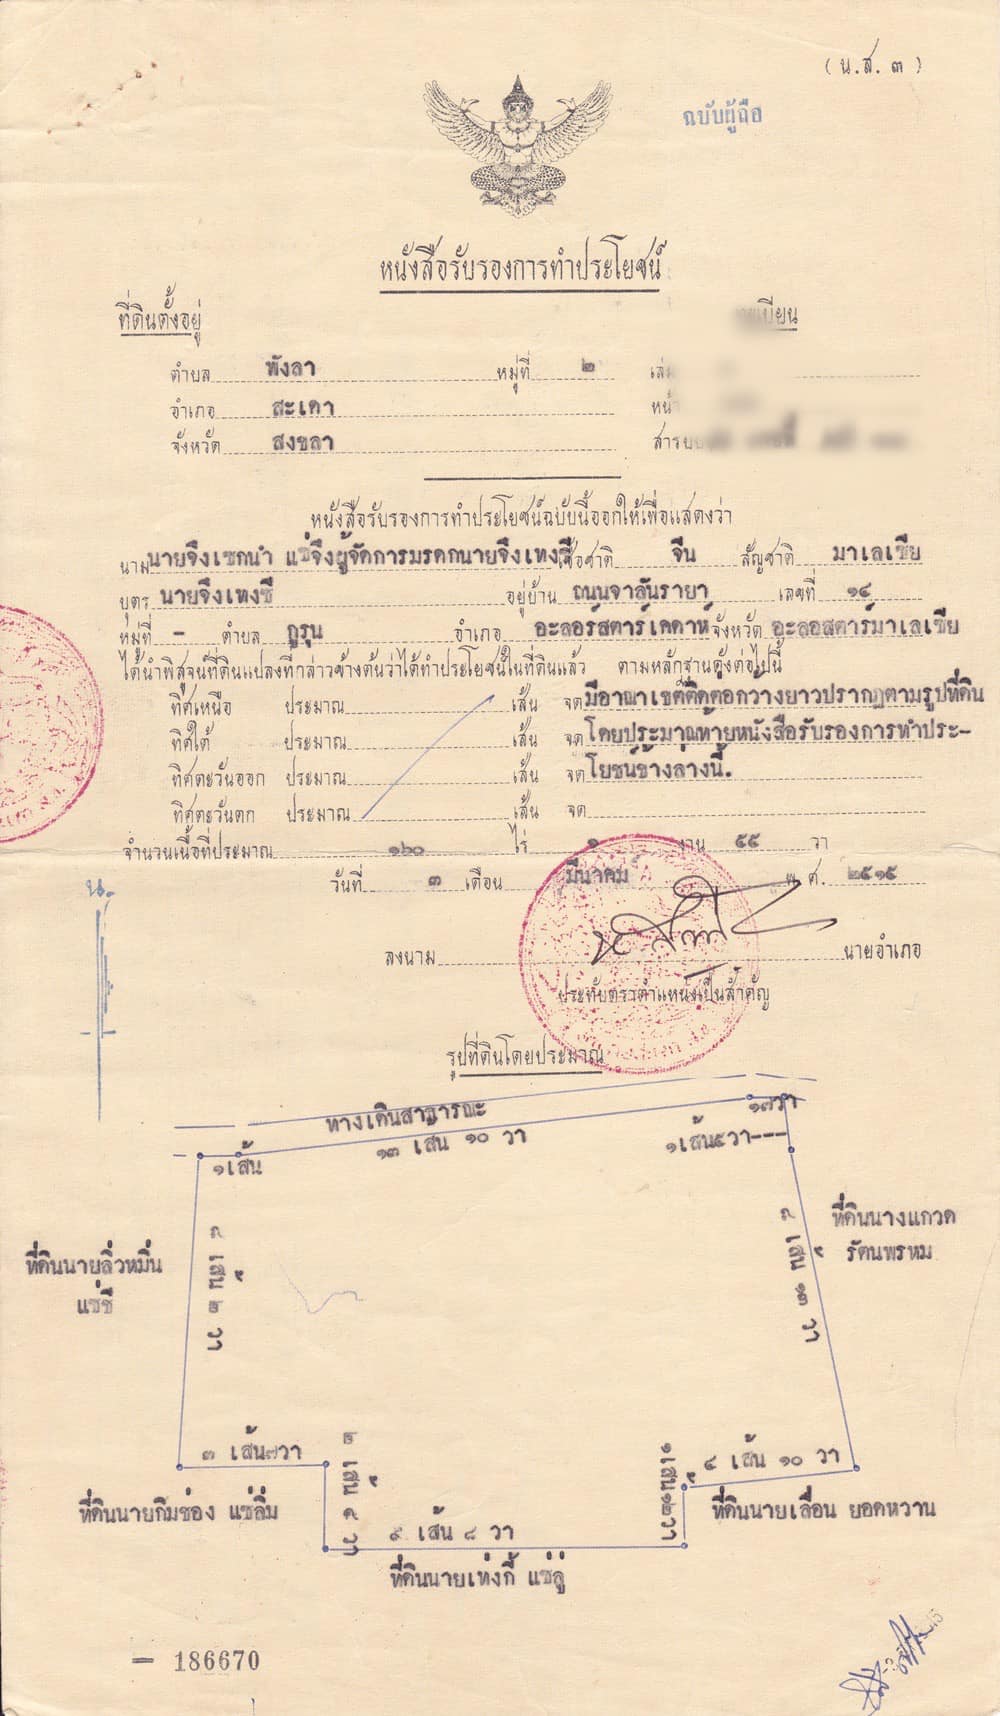 ( น.ส. ๓ )
ฉบับผู้ถือ
หนังสือรับรองการทำประโยชน์
ที่ดินตั้งอยู่
ทะเบียน
ตำบล พังลา หมู่ที่ ๒ เล่ม
อำเภอ สะเดา หน้า
จังหวัด สงขลา
หนังสือรับรองการทำประโยชน์ฉบับนี้ออกให้เพื่อแสดงว่า
นาม นายจึงเซกนำ แซ่จึงผู้จัดการมรดกนายจึงเทงซี เชื้อชาติ จีน สัญชาติ มาเลเซีย
บุตร นายจึงเทงซี อยู่บ้าน ถนนจาลันรายา เลขที่ ๑๔
หมู่ที่ - ตำบล กูรุน อำเภอ อะลอร์สตาร์เคดาห์ จังหวัด อะลอสตาร์มาเลเซีย
ได้นำพิสูจน์ที่ดินแปลงที่กล่าวข้างต้นว่าได้ทำประโยชน์ในที่ดินแล้ว ตามหลักฐานดังต่อไปนี้
ทิศเหนือ ประมาณ เส้น จด มีอาณาเขตติดต่อกว้างยาวปรากฏตามรูปที่ดิน
ทิศใต้ ประมาณ เส้น จด โดยประมาณท้ายหนังสือรับรองการทำประ-
ทิศตะวันออก ประมาณ เส้น จด โยชน์ข้างล่างนี้.
ทิศตะวันตก ประมาณ เส้น จด
จำนวนเนื้อที่ประมาณ ๑๖๐ ไร่ ๑ งาน ๕๕ วา
วันที่ ๓ เดือน มีนาคม พ.ศ. ๒๕๑๕
น.
ลงนาม นายอำเภอ
ประทับตราตำแหน่งเป็นสำคัญ
รูปที่ดินโดยประมาณ
ทางเดินสาธารณะ
๑๗วา
๑เส้น
๑๓ เส้น ๑๐ วา
๑เส้น๕วา---
๘ เส้น ๒ วา
๘ เส้น ๑๓ วา
ที่ดินนางแกวด
รัตนพรหม
ที่ดินนายลิ่วหมิ่น
แซ่ซี
๓ เส้น๗วา
๒ เส้น ๔ วา
๙ เส้น ๘ วา
๑เส้น๑๒วา
๔ เส้น ๑๐ วา
ที่ดินนายกิมซ่อง แซ่ลิ่ม
ที่ดินนายเลื่อน ยอดหวาน
ที่ดินนายเท่งกี้ แซ่ลู่
— 186670